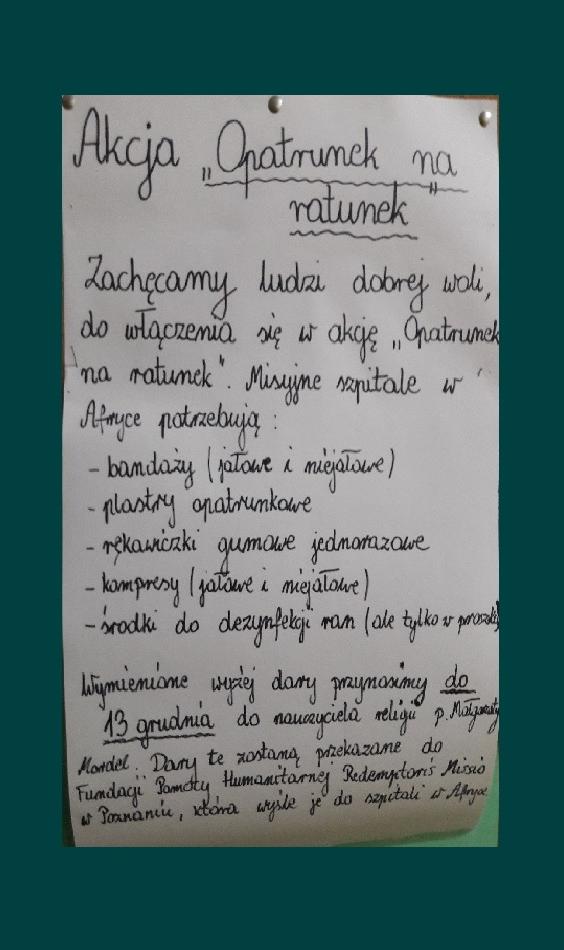 Akcja „Opatrunek na
ratunek"
Zachęcamy ludzi dobrej woli,
do włączenia się w akcję „Opatrunek
na ratunek". Misyjne szpitale w
Afryce potrzebują:
- bandaży (jałowe i niejałowe)
- plastry opatrunkowe
- rękawiczki gumowe jednorazowe
- kompresy (jałowe i niejałowe)
- środki do dezynfekcji ran (ale tylko w proszku)
Wymienione wyżej dary przynosimy do
13 grudnia do nauczyciela religii p. Małgorzaty
Mandel. Dary te zostaną przekazane do
Fundacji Pomocy Humanitarnej Redemptoris Missio
w Poznaniu, która wyśle je do szpitali w Afryce